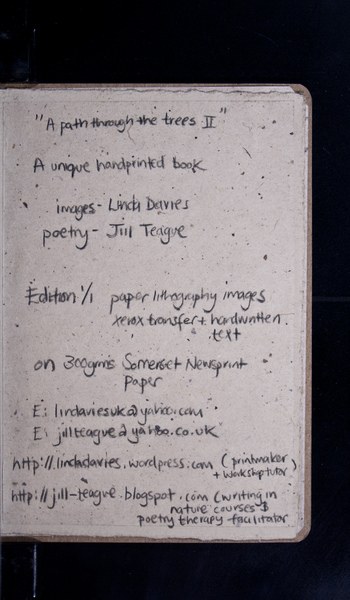 "A path through the trees II"
A unique handprinted book
images - Linda Davies
poetry - Jill Teague
Edition 1/1 paper lithography images
xerox transfer + handwritten
text
on 300gms Somerset Newsprint
Paper
E: lindaviesuk@yahoo.com
E: jillteague@yahoo.co.uk
http://lindadavies.wordpress.com (printmaker
+ workshop tutor)
http://jill-teague.blogspot.com (writing in
nature courses &
poetry therapy facilitator)